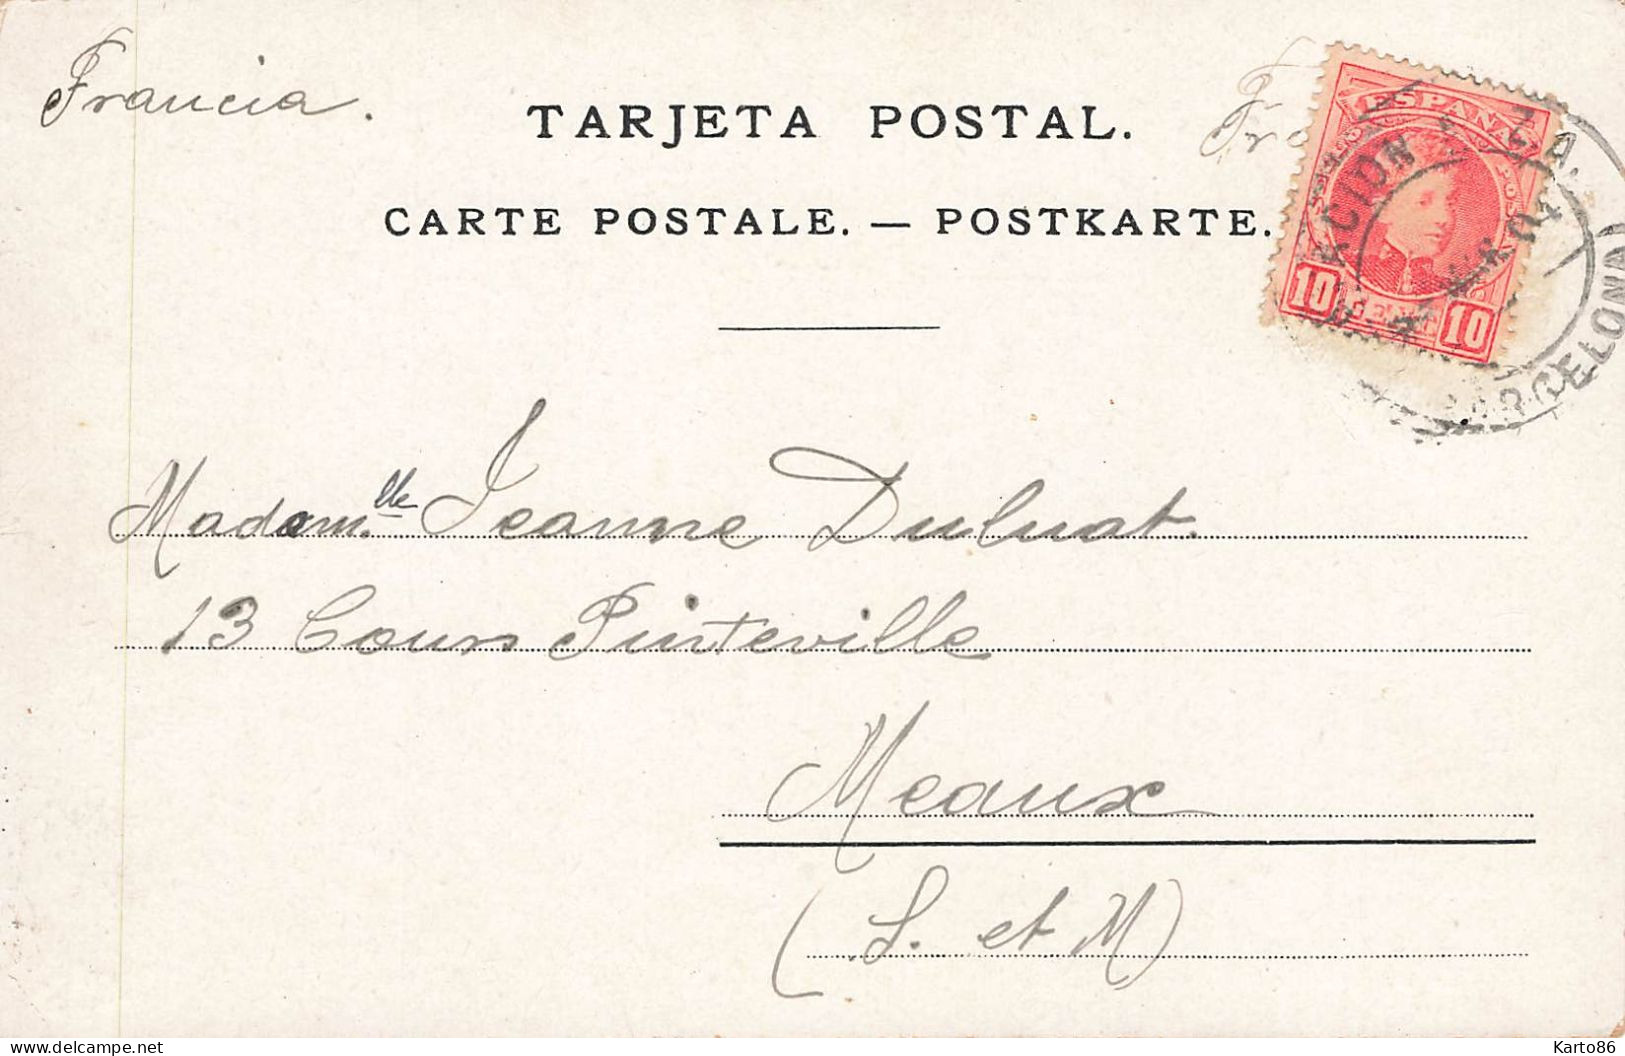 Francia.
TARJETA POSTAL.
CARTE POSTALE. — POSTKARTE.
ESPAÑA
10 CENT. 10
BARCELONA)
Madam.lle Jeanne Duluat.
13 Cours Pinteville
Meaux
(S. et M)
delcampe.net
Karto86